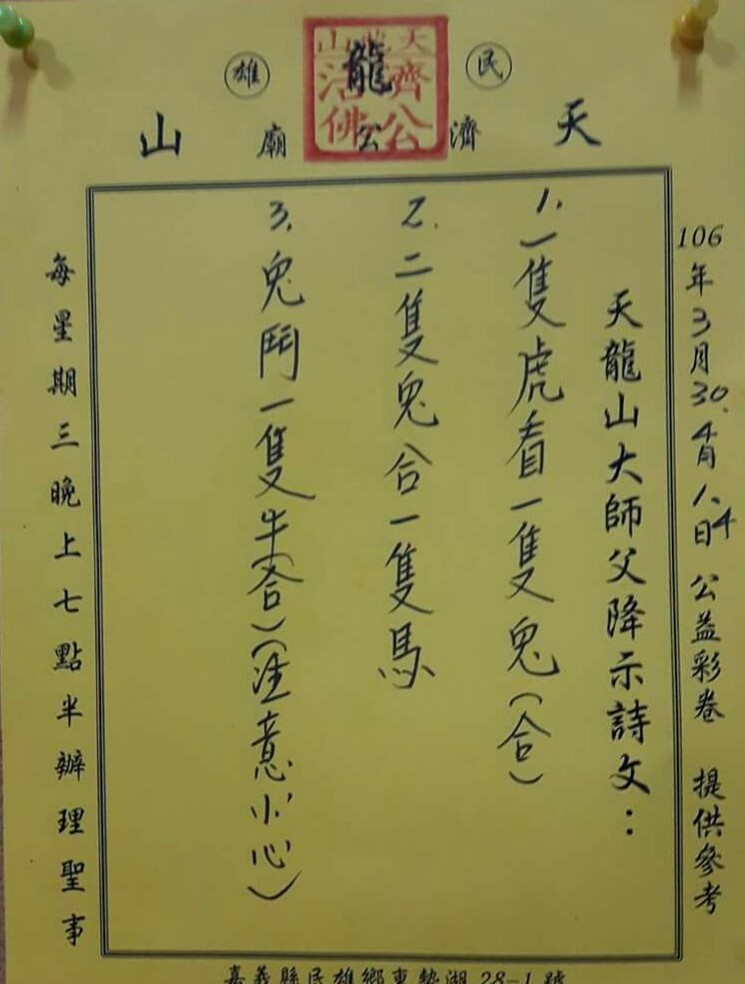 民雄
天龍山
濟公廟
天龍山
濟公
活佛
106年3月30.4月1.4日 公益彩卷 提供參考
天龍山大師父降示詩文：
1.一隻虎看一隻兔(合)
2.二隻兔合一隻馬
3.兔鬥一隻牛(合)(注意小心)
每星期三晚上七點半辦理聖事
嘉義縣民雄鄉東勢湖28-1號